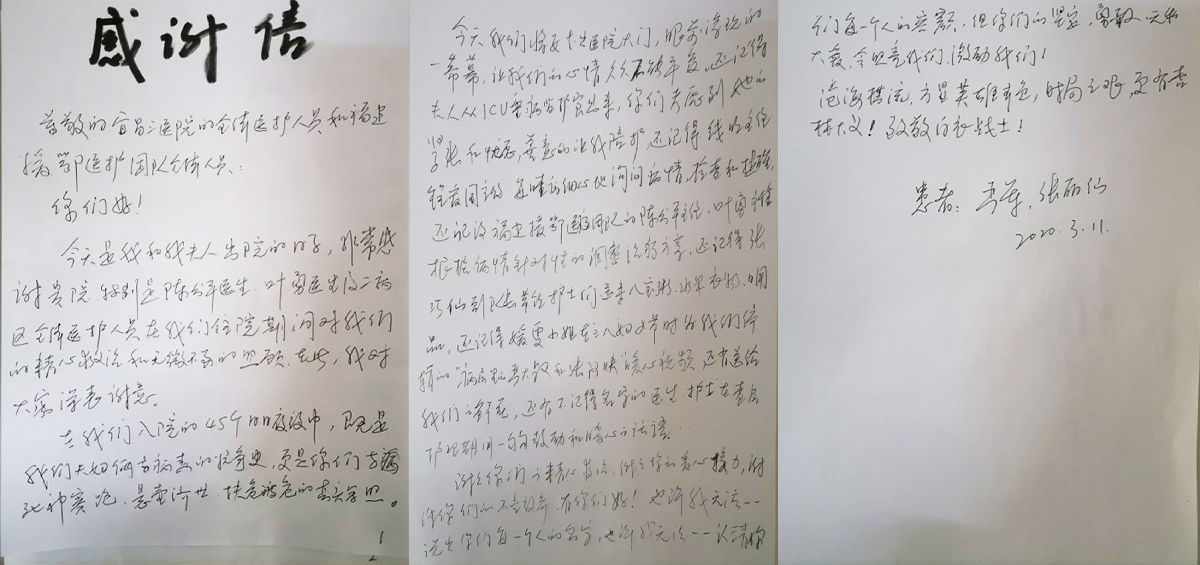 感谢信
尊敬的宜昌三医院的全体医护人员和福建
援鄂医护团队全体人员:
你们好!
今天是我和我夫人出院的日子,非常感
谢贵院,特别是陈公平医生、叶勇医生及二病
区全体医护人员在我们住院期间对我们
的精心救治和无微不至的照顾。在此,我对
大家深表谢意。
在我们入院的45个日日夜夜中,既是
我们夫妇俩与病毒的抗争史,更是你们与
死神赛跑、悬壶济世、扶危救危的真实写照。
今天我们将要走出医院大门,眼前浮现的
一幕幕,让我们的心情久久不能平复。还记得
夫人从ICU重症监护室出来,你们考虑到她的
紧张和忧虑,善意的让我陪护,还记得
每嘱的细心地询问病情,检查和
还记得福建援鄂医疗团队的陈公平主任、叶勇主任
根据病情针对性的调整治疗方案,还记得张
巧仙副队长带给护士们送来八宝粥、水果、衣物、日用
品,还记得媛雯小姐在三八妇女节时为我们编
辑的“病房和大叔和张阿姨”暖心视频,还有送给
我们的鲜花,还有不记得名字的医生、护士在查房
护理期间一句句鼓励和暖心的话语...
谢谢你们的精心救治,谢谢你们的爱心接力,谢
谢你们的不离放弃,有你们好!也许我无法一一
说出你们每一个人的名字,也许我无法一一认清你
们每一个人的容颜,但你们的坚定、勇敢、无私
大爱,会照亮我们,激励我们!
沧海横流,方显英雄本色,时局之艰,更有杏
林大义!致敬白衣战士!
患者:    张丽仙
2020.3.11.